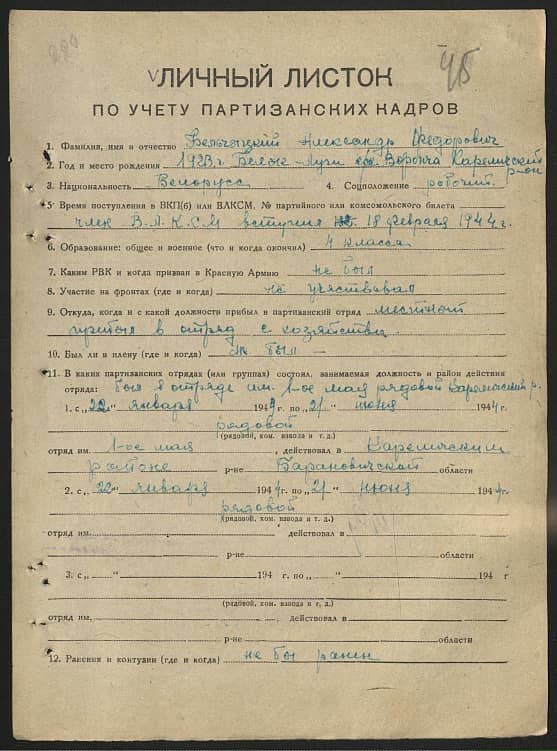 45
ЛИЧНЫЙ ЛИСТОК
ПО УЧЕТУ ПАРТИЗАНСКИХ КАДРОВ
1. Фамилия, имя и отчество Александр Федорович
2. Год и место рождения 1923 г. Воронча Кареличский
р-он
3. Национальность Белорусс 4. Соцположение робочий
5. Время поступления в ВКП(б) или ВЛКСМ, № партийного или комсомольского билета
член В.Л.К.С.М вступил 18 февраля 1944 г.
6. Образование: общее и военное (что и когда окончил) 4 класса
7. Каким РВК и когда призван в Красную Армию не был
8. Участие на фронтах (где и когда) не участвовал
9. Откуда, когда и с какой должности прибыл в партизанский отряд местный
прибыл в отряд с хозяйства.
10. Был ли в плену (где и когда) не был —
11. В каких партизанских отрядах (или группах) состоял, занимаемая должность и район действия
отряда: был в отряде им. 1-ое мая рядовой р.
1. с „22" января 1944 г. по „21" июня 1944 г.
рядовой
(рядовой, ком. взвода и т. д.)
отряд им. 1-ое мая, действовал в Кареличским
районе р-не Барановичской области
2. с „22" января 1944 г. по „21" июня 1944 г.
рядовой
(рядовой, ком. взвода и т. д.)
отряд им. действовал в
р-не области
3. с „ " 194 г. по „ " 194 г
(рядовой, ком. взвода и т. д.)
отряд им. , действовал в
р-не области
12. Ранения и контузии (где и когда) не был ранен